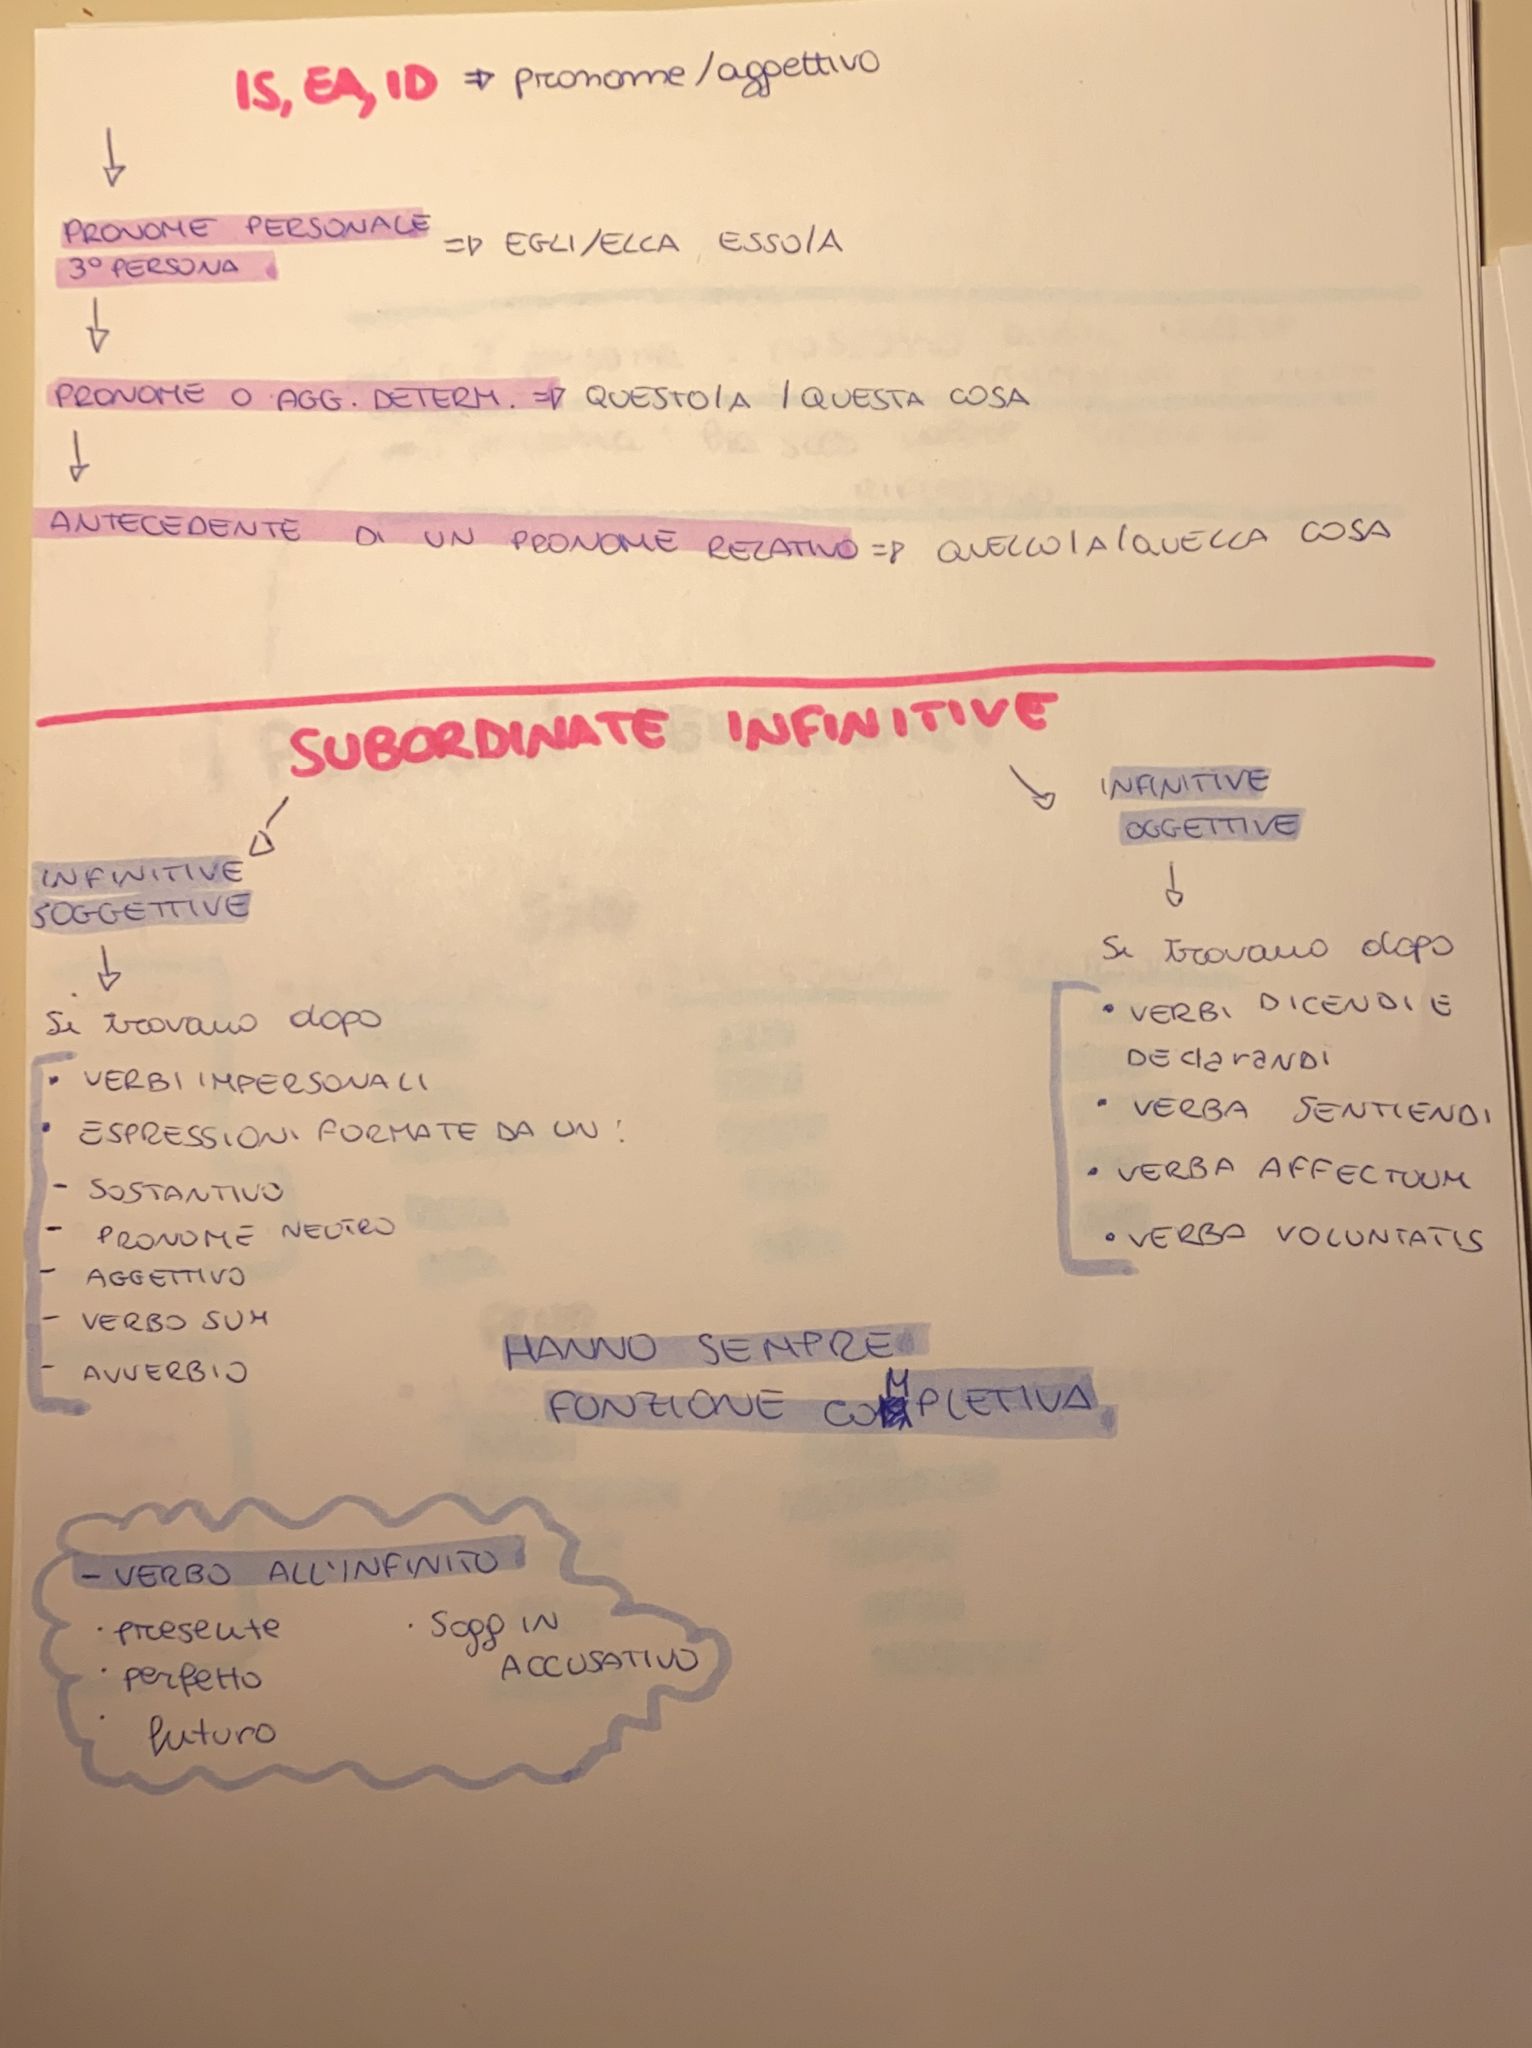 IS, EA, ID ⇒ pronome/aggettivo
PRONOME PERSONALE
3° PERSONA
⇒ EGLI/ELLA ESSO/A
PRONOME O AGG. DETERM. ⇒ QUESTO/A / QUESTA COSA
ANTECEDENTE DI UN PRONOME RELATIVO ⇒ QUELLO/A/QUELLA COSA
SUBORDINATE INFINITIVE
INFINITIVE
SOGGETTIVE
Si trovano dopo
• VERBI IMPERSONALI
• ESPRESSIONI FORMATE DA UN:
- SOSTANTIVO
- PRONOME NEUTRO
- AGGETTIVO
- VERBO SUM
- AVVERBIO
INFINITIVE
OGGETTIVE
Si trovano dopo
• VERBI DICENDI E
DEClaraNDI
• VERBA SENTIENDI
• VERBA AFFECTUUM
• VERBA VOLUNTATIS
HANNO SEMPRE
FUNZIONE COMPLETIVA
- VERBO ALL'INFINITO
· presente
· perfetto
· futuro
· Sogg IN
ACCUSATIVO